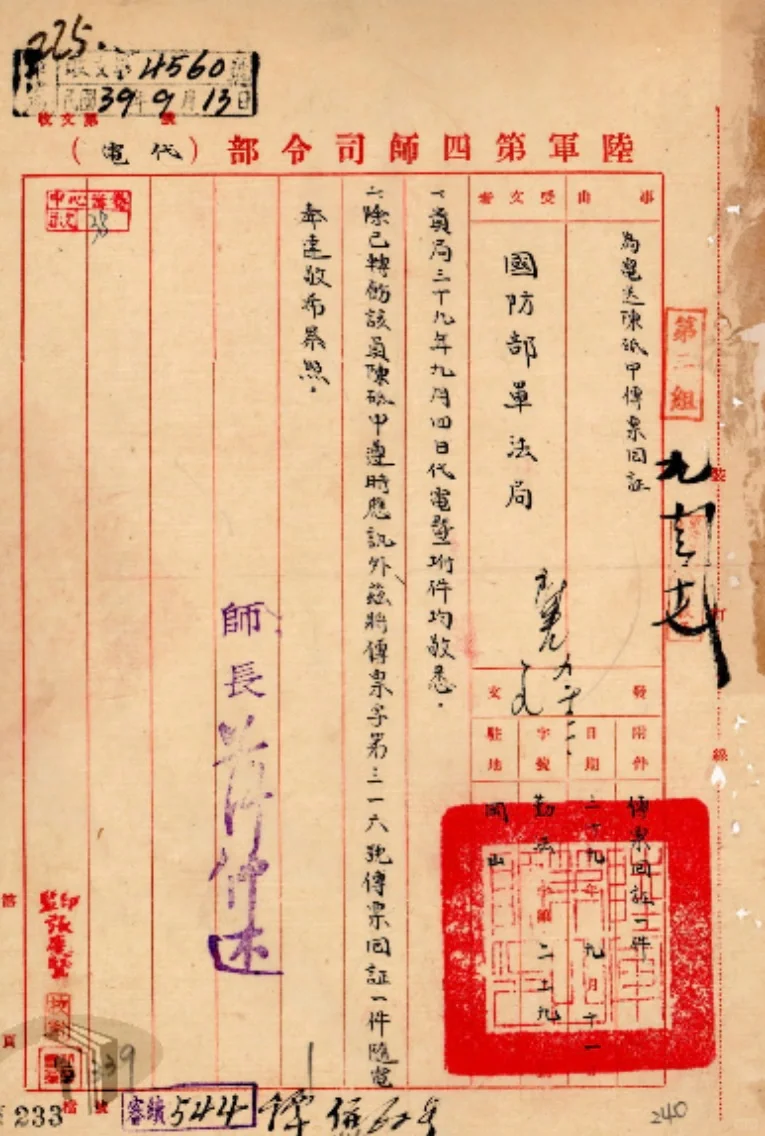 225.
收文第4560號
民國39年9月13日
陸軍第四師司令部(代電)
事由
為電送陳祗甲傳票回証
受文者
國防部軍法局
第二組
發文
附件
傳票回証一件
日期
三十九年九月十一
字號
勤法字第二二九
駐地
岡山
一、貴局三十九年九月四日代電暨附件均敬悉。
二、除已轉飭該員陳祗甲遵時應訊外茲將傳票字第三一六號傳票回証一件隨電
奉達敬希察照。
師長
監印
裝
訂
線
頁
檔號
233
339
544
240